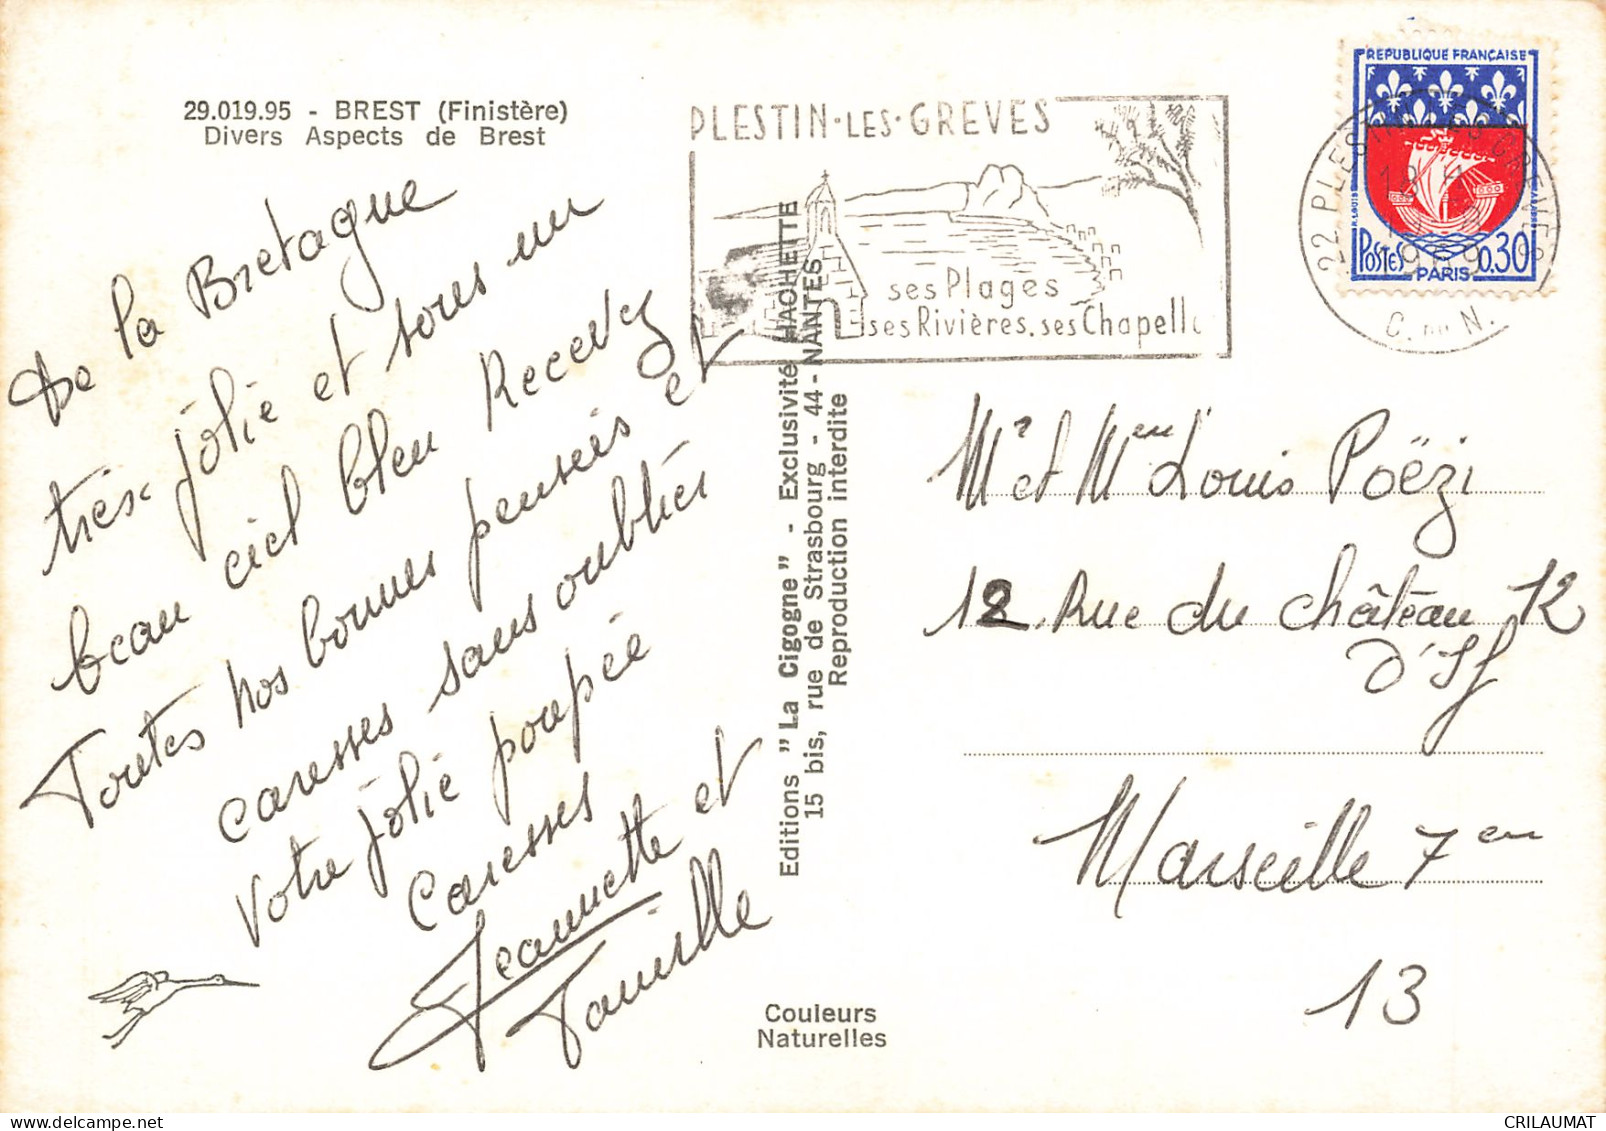 29.019.95 - BREST (Finistère)
Divers Aspects de Brest
De la Bretagne
très jolie et sous un
beau ciel bleu Recevez
Toutes nos bonnes pensées et
caresses sans oublier
votre jolie poupée
Caresses
Jeannette et
Famille
PLESTIN·LES·GREVES
ses Plages
ses Rivières. ses Chapell
Editions "La Cigogne" - Exclusivité HACHETTE
15 bis, rue de Strasbourg - 44 - NANTES
Reproduction interdite
Couleurs
Naturelles
REPUBLIQUE FRANÇAISE
POSTES
PARIS
0.30
22 PLESTIN LES GREVES
C. DU N.
Mr et Mme Louis Poëzi
12 Rue du château 12
d'If
Marseille 7 em
13
CRILAUMAT